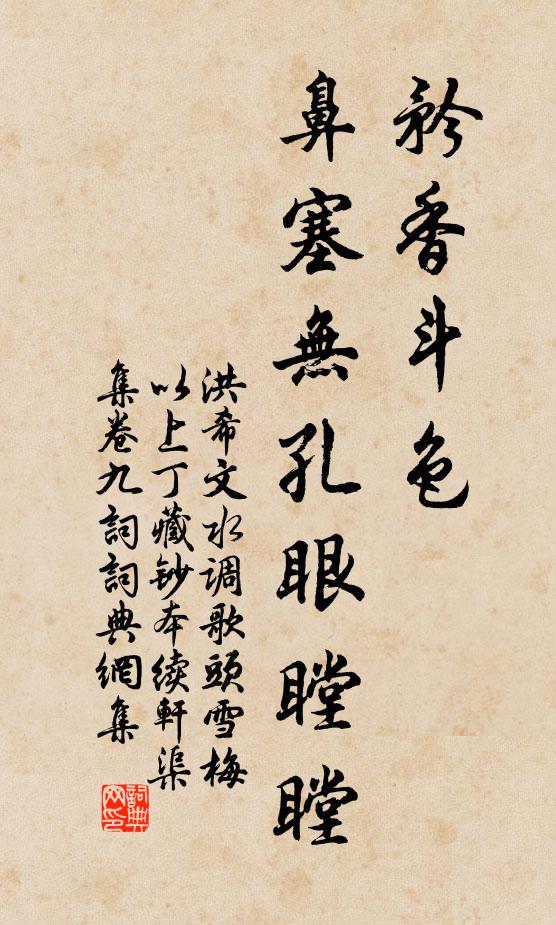 矜香斗色
鼻塞無孔眼瞠瞠
洪希文水调歌頭雪梅
以上丁藏鈔本续軒渠
集卷九詞詞典網集
詞典网印